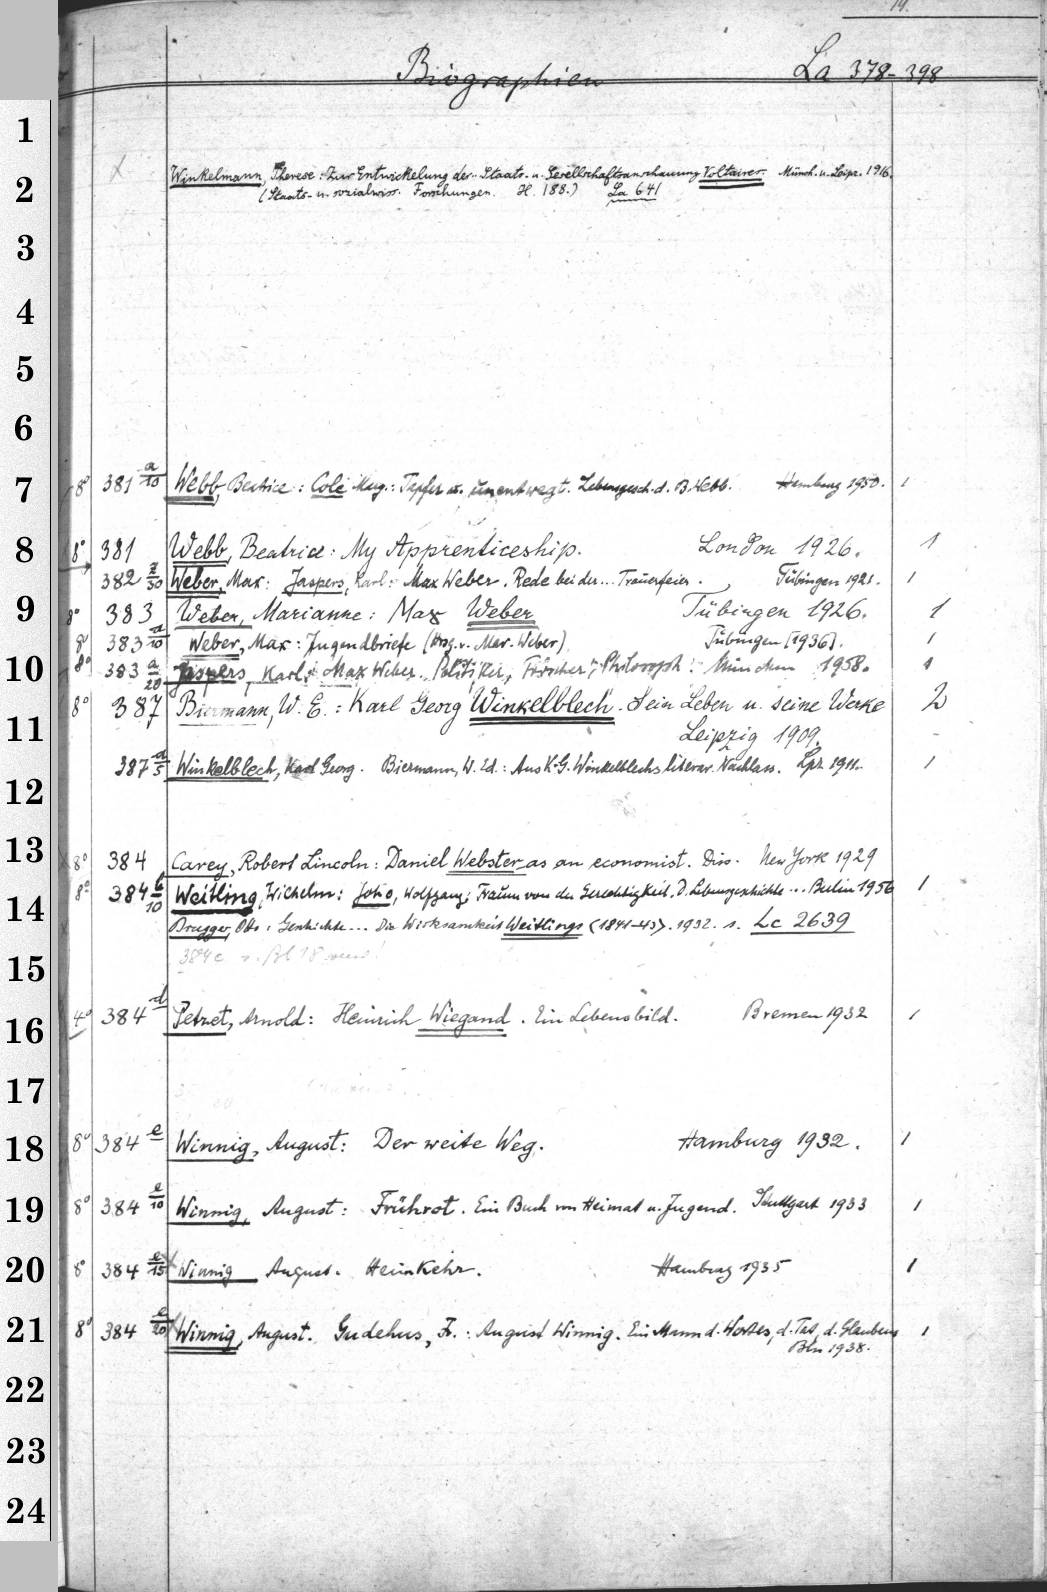 14.
Biographien La 378-398
Winkelmann, Therese: Zur Entwickelung der Staats- u. Gesellschaftsanschauung Voltaires. Münch. u. Leipz. 1916.
(Staats- u. sozialwiss. Forschungen. H. 188.) La 641
8° 381 a/10 Webb, Beatrice: Cole Mag.: Tapfer u. unentwegt. Lebensgesch. d. B. Webb. Hamburg 1950. 1
8° 381 Webb, Beatrice: My Apprenticeship. London 1926. 1
382 Weber, Max: Jaspers, Karl: Max Weber. Rede bei der... Trauerfeier. Tübingen 1921. 1
8° 383 Weber, Marianne: Max Weber Tübingen 1926. 1
8° 383 a/10 Weber, Max: Jugendbriefe (Hrsg. v. Mar. Weber) Tübingen [1936]. 1
8° 383 a/20 Jaspers, Karl: Max Weber. Politiker, Forscher, Philosoph. München 1958. 1
8° 387 Biermann, W. E.: Karl Georg Winkelblech. Sein Leben u. seine Werke 2
Leipzig 1909.
387 a/5 Winkelblech, Karl Georg. Biermann, W. Ed.: Aus K. G. Winkelblechs literar. Nachlass. Lpz. 1911. 1
8° 384 Carey, Robert Lincoln: Daniel Webster as an economist. Diss. New York 1929
8° 384 b/10 Weitling, Wilhelm: Joho, Wolfgang: Traum von der Gerechtigkeit. D. Lebensgeschichte ... Berlin 1956 1
Brugger, Otto: Geschichte... Die Wirksamkeit Weitlings (1841-43). 1932. s. Lc 2639
384 c s. Bl 18
4° 384 d Petzet, Arnold: Heinrich Wiegand. Ein Lebensbild. Bremen 1932 1
8° 384 e Winnig, August: Der weite Weg. Hamburg 1932. 1
8° 384 e/10 Winnig, August: Frührot. Ein Buch von Heimat u. Jugend. Stuttgart 1933 1
8° 384 e/15 Winnig August. Heimkehr. Hamburg 1935 1
8° 384 e/20 Winnig, August. Gudehus, F.: August Winnig. Ein Mann d. Wortes, d. Tat, d. Glaubens 1
Bln 1938.
1
2
3
4
5
6
7
8
9
10
11
12
13
14
15
16
17
18
19
20
21
22
23
24